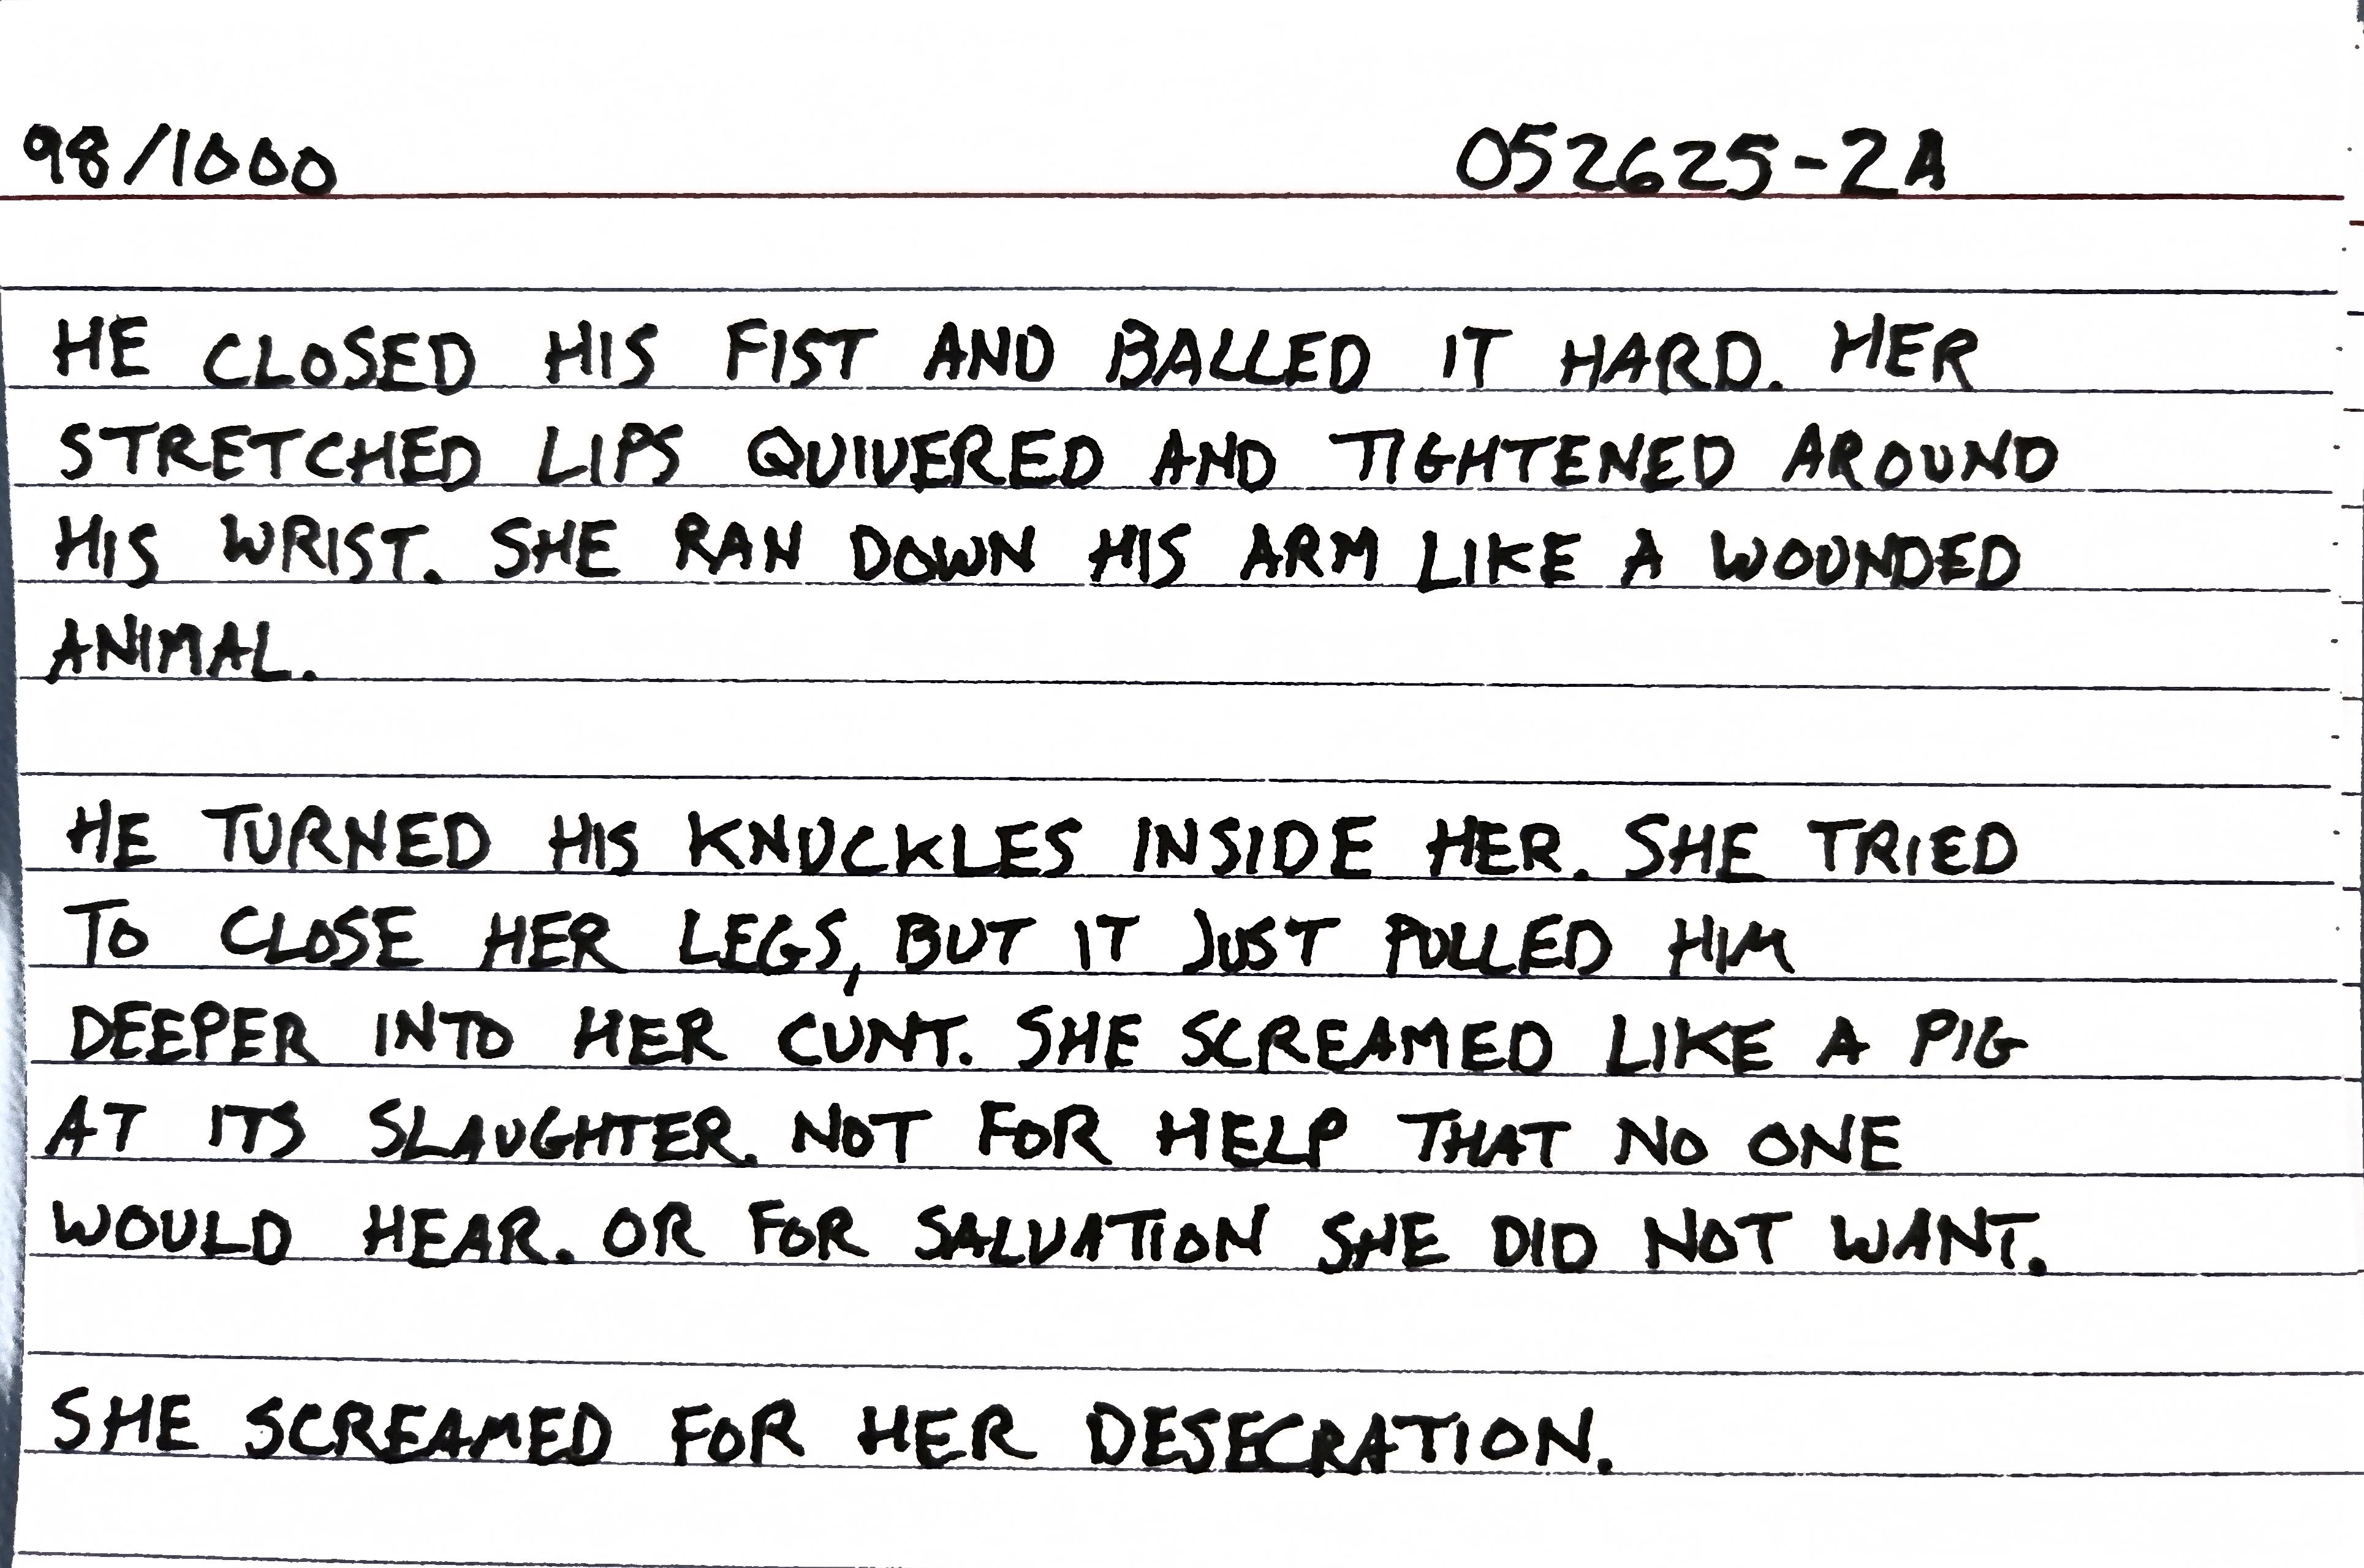 98/1000 052625-2A
HE CLOSED HIS FIST AND BALLED IT HARD. HER
STRETCHED LIPS QUIVERED AND TIGHTENED AROUND
HIS WRIST. SHE RAN DOWN HIS ARM LIKE A WOUNDED
ANIMAL.
HE TURNED HIS KNUCKLES INSIDE HER. SHE TRIED
TO CLOSE HER LEGS, BUT IT JUST PULLED HIM
DEEPER INTO HER CUNT. SHE SCREAMED LIKE A PIG
AT ITS SLAUGHTER. NOT FOR HELP THAT NO ONE
WOULD HEAR. OR FOR SALVATION SHE DID NOT WANT.
SHE SCREAMED FOR HER DESECRATION.